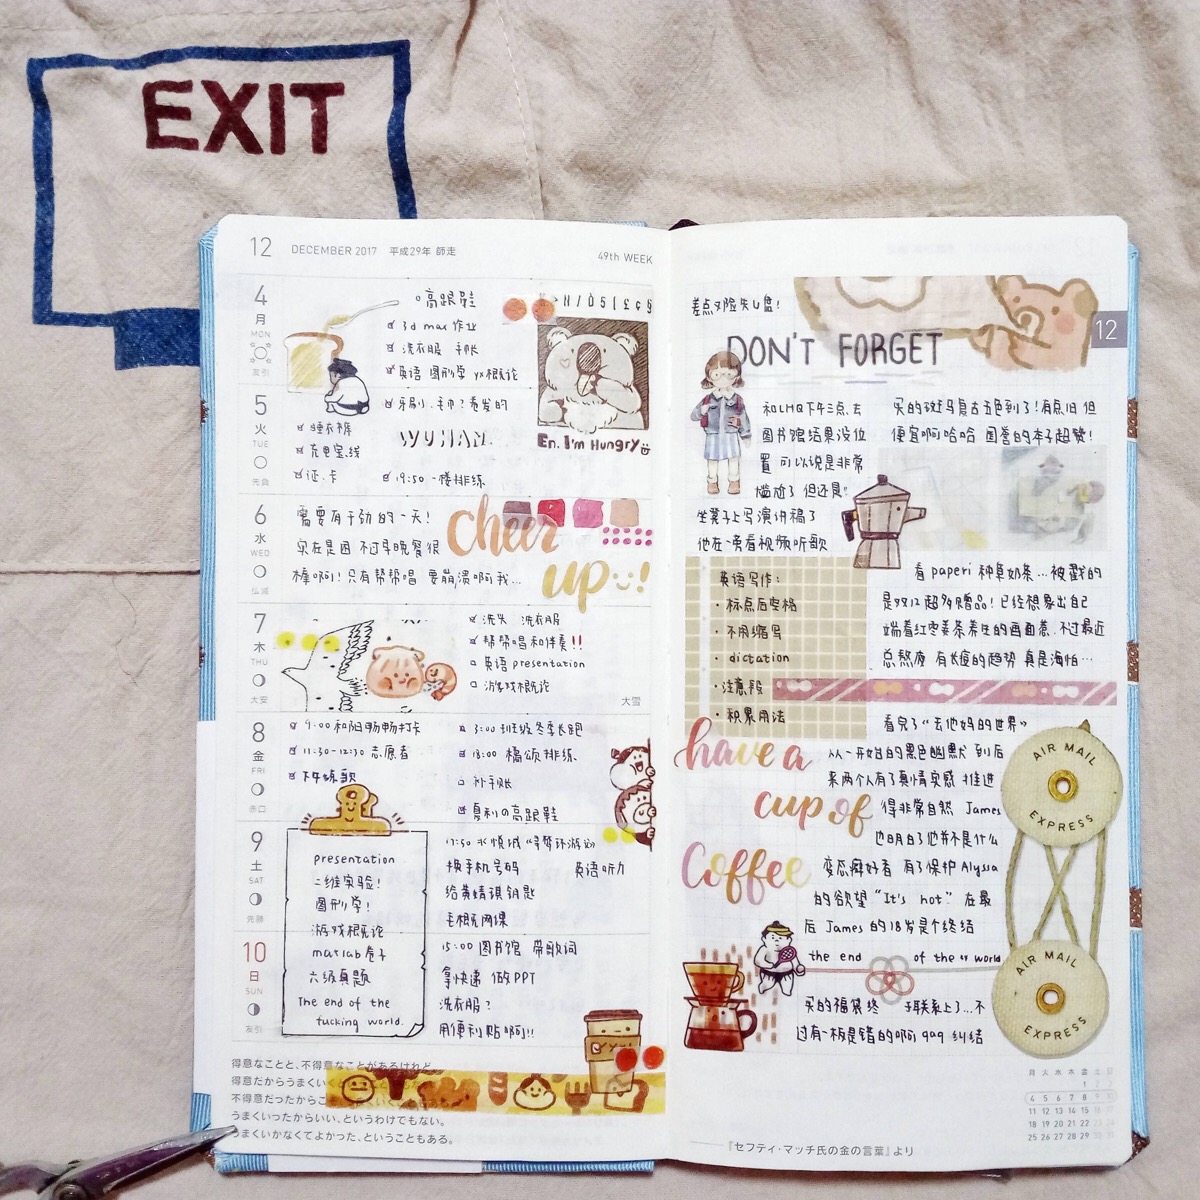 EXIT
12 DECEMBER 2017 平成29年 師走
49th WEEK
4
月
MON
友引
高跟鞋
3d max 作业
洗衣服 手帐
英语 图形学 yx概论
En. I'm Hungry
5
火
TUE
先負
牙刷、毛巾?卷发的
睡衣裤
充电宝、线
证、卡
WUHAN.
19:50 一楼排练
6
水
WED
仏滅
需要有干劲的一天!
实在是困 不过早晚餐很
棒啊!只有帮帮唱 要崩溃啊我…
cheer
up !
7
木
THU
大安
洗头 洗衣服
帮帮唱和伴奏!!
英语 presentation
游戏概论
大雪
8
金
FRI
赤口
9:00 和阳畅畅打卡
11:30-12:30 志愿者
下午练歌
3:00 班级冬季长跑
18:00 橘颂排练、
补手账
夏利の高跟鞋
9
土
SAT
先勝
presentation
二维实验!
图形学!
游戏概论
matlab卷子
六级真题
The end of the
fucking world.
换手机号码 英语听力
给黄婧琪钥匙
毛概网课
10
日
SUN
友引
15:00 图书馆 带歌词
拿快递 做PPT
洗衣服?
用便利贴啊!!
得意なことと、不得意なことがあるけれど、
得意だからうまくいく
不得意だったからこ
うまくいったからいい、というわけでもない。
うまくいかなくてよかった、ということもある。
差点又险失U盘!
DON'T FORGET
12
和LHQ下午三点去
图书馆结果没位
置 可以说是非常
尴尬了 但还是
坐凳子上写演讲稿了
他在一旁看视频听歌
买的斑马复古五色到了!有点旧 但
便宜啊哈哈 国誉的本子超赞!
英语写作:
·标点后空格
·不用缩写
·dictation
·注意段
·积累用法
看 paperi 种草奶茶…被戳的
是双12超多赠品!已经想象出自己
端着红枣姜茶养生的画面惹 不过最近
总熬夜 有长痘的趋势 真是海怕…
看完了“去他妈的世界”
从一开始的黑色幽默 到后
来两个人有了真情实感 推进
得非常自然 James
也明白了他并不是什么
变态癖好者 有了保护 Alyssa
的欲望 “It's not” 在最
后 James 的18岁是个终结
the end of the world
have a
cup of
Coffee
AIR MAIL
EXPRESS
AIR MAIL
EXPRESS
买的福袋终 联系上了…不
过有一板是错的啊 qaq 纠结
月 火 水 木 金 土 日
1 2 3
4 5 6 7 8 9 10
11 12 13 14 15 16 17
18 19 20 21 22 23 24
25 26 27 28 29 30 31
『セフティ・マッチ氏の金の言葉』より